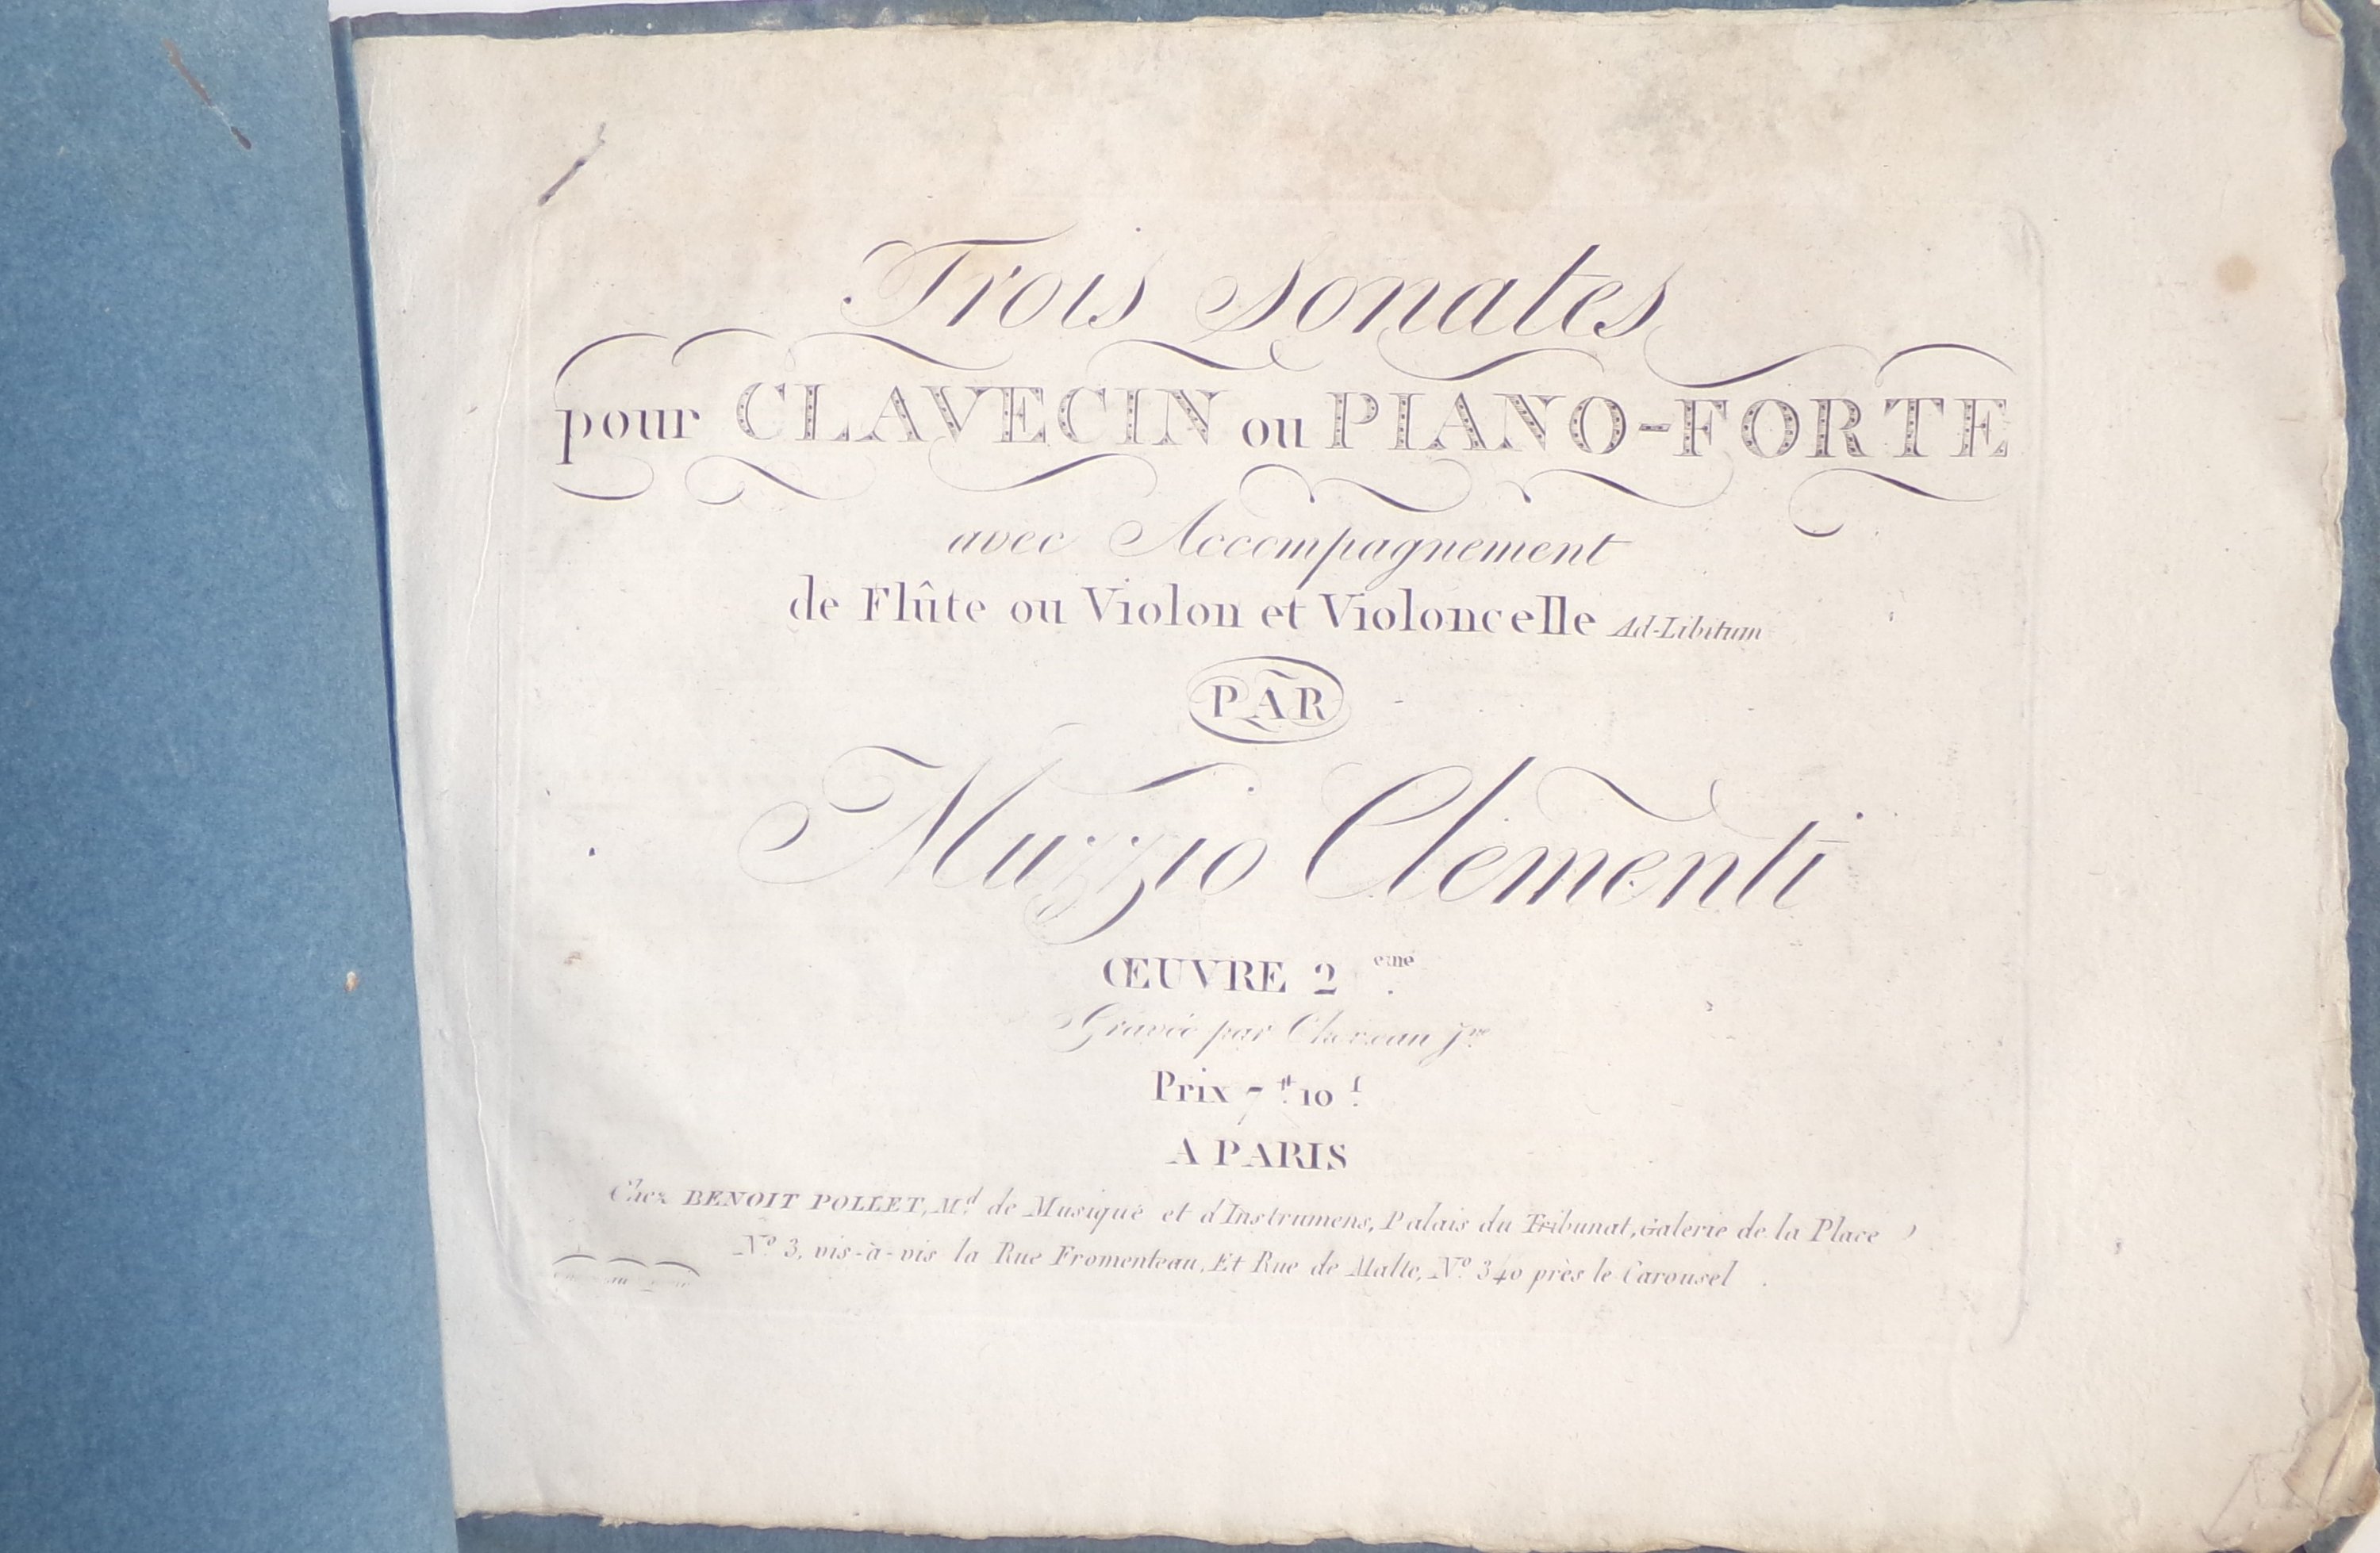 Trois Sonates
pour CLAVECIN ou PIANO-FORTE
avec Accompagnement
de Flûte ou Violon et Violoncelle Ad-Libitum
PAR
Muzzio Clementi
ŒUVRE 2 eme
Gravée par jne
Prix 7 ₶ 10 ſ
A PARIS
Chez BENOIT POLLET, Md. de Musique et d'Instrumens, Palais du Tribunat, Galerie de la Place
No. 3, vis-à-vis la Rue Fromenteau, Et Rue de Malte, No. 340 près le Carousel.